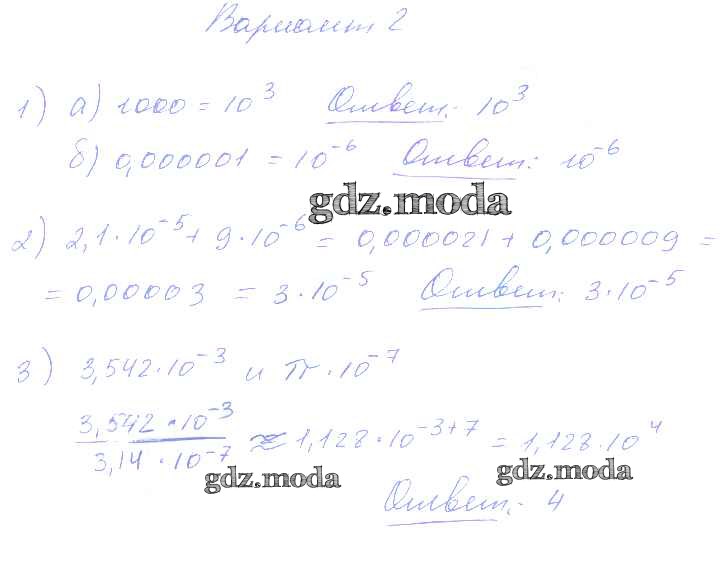 Вариант 2
1) а) 1000 = 10³ Ответ: 10³
б) 0,000001 = 10⁻⁶ Ответ: 10⁻⁶
gdz.moda
2) 2,1·10⁻⁵ + 9·10⁻⁶ = 0,000021 + 0,000009 =
= 0,00003 = 3·10⁻⁵ Ответ: 3·10⁻⁵
3) 3,542·10⁻³ и π·10⁻⁷
3,542·10⁻³ / 3,14·10⁻⁷ ≈ 1,128·10⁻³⁺⁷ = 1,128·10⁴
gdz.moda gdz.moda
Ответ: 4